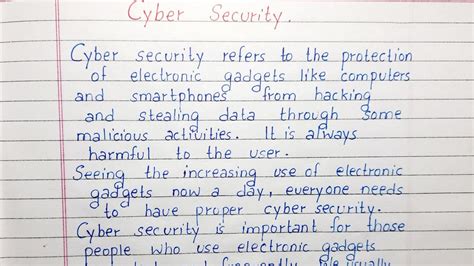 Cyber Security.
Cyber security refers to the protection
of electronic gadgets like computers
and smartphones from hacking
and stealing data through some
malicious activities. It is always
harmful to the user.
Seeing the increasing use of electronic
gadgets now a day, everyone needs
to have proper cyber security.
Cyber security is important for those
people who use electronic gadgets